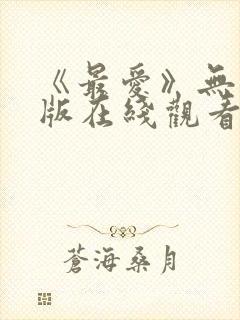 《最愛》無
版在綫觀看
蒼海桑月